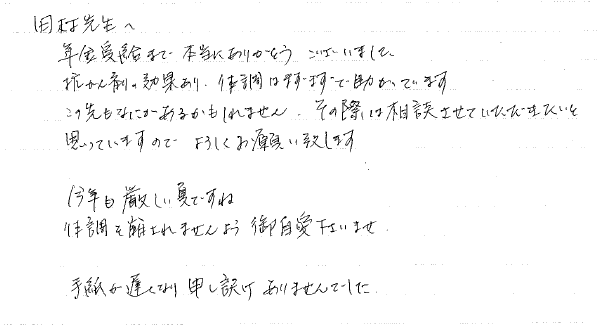 田村先生へ
年金受給まで本当にありがとうございました
抗がん剤の効果あり、体調はまずまずで助かっています
この先もなにかあるかもしれません、その際は相談させていただきたいと
思っていますので よろしくお願い致します
今年も厳しい夏ですね
体調を崩されませんよう御自愛下さいませ
手紙が遅くなり申し訳ありませんでした